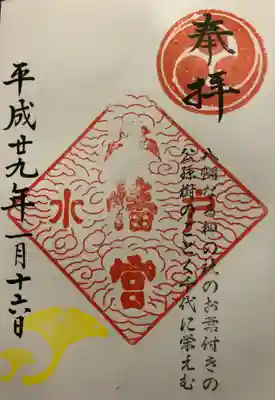 奉拝
八幡なる の杜のお葉付きの
公孫樹のごとく千代に栄えむ
八幡宮
水戸
平成廿九年一月十六日